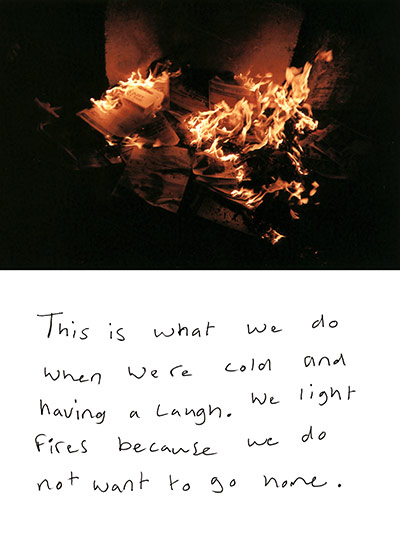 This is what we do
when we're cold and
having a laugh. We light
fires because we do
not want to go home.